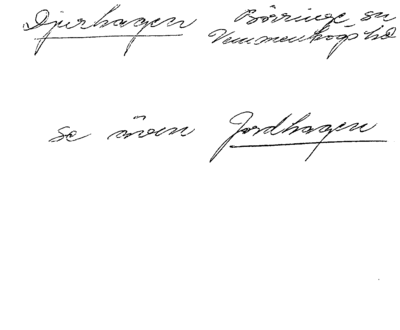 Djurhagen Börringe sn
Vemmenhögs hd
se även Jordhagen